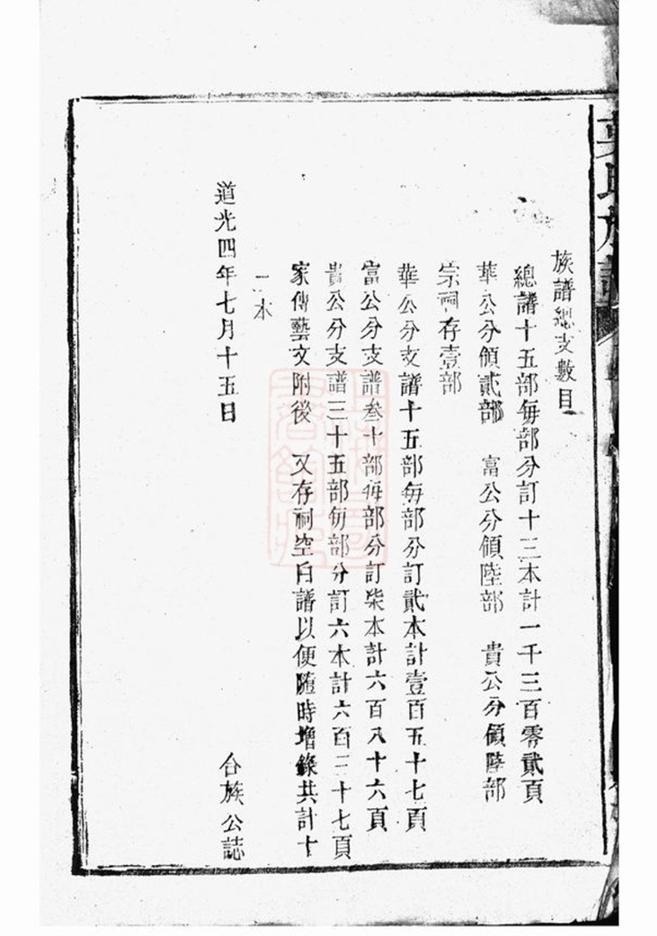 族譜總支數目
總譜十五部每部分訂十三本計一千三百零貳頁
華公分領貳部　富公分領陸部　貴公分領陸部
宗祠存壹部
華公分支譜十五部每部分訂貳本計壹百五十七頁
富公分支譜叁十部每部分訂柒本計六百八十六頁
貴公分支譜三十五部每部分訂六本計六百三十七頁
家傳藝文附後　又存祠空白譜以便隨時增錄共計十
二本
道光四年七月十五日　合族公誌